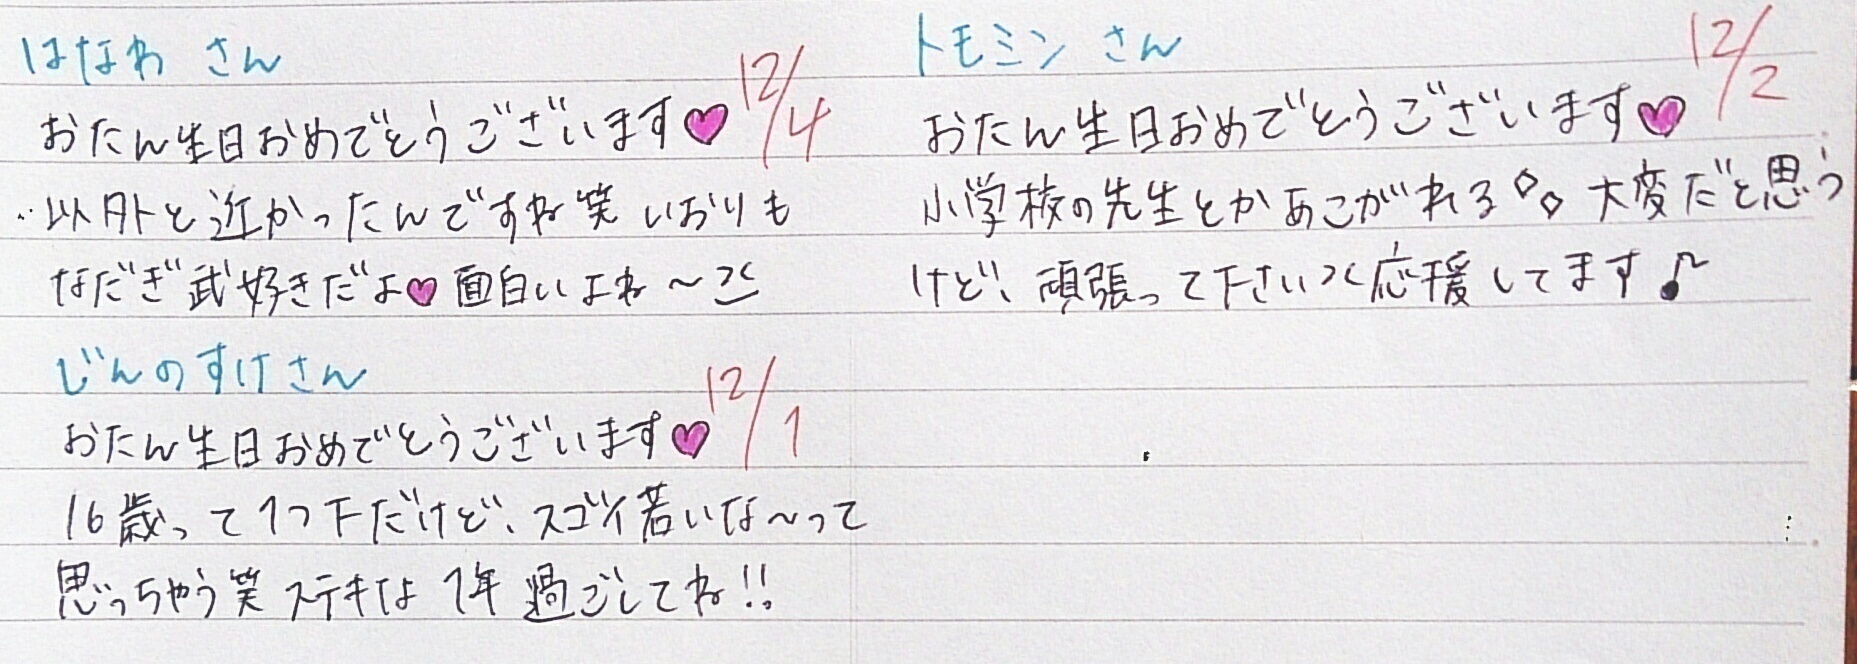 はなわ さん
12/4
おたん生日おめでとうございます♥
以外と近かったんですね笑 いおりも
なだぎ武好きだよ♥面白いよね～
じんのすけさん
12/1
おたん生日おめでとうございます♥
16歳って1つ下だけど、スゴイ若いな～って
思っちゃう笑 ステキな1年過ごしてね!!
トモミン さん
12/2
おたん生日おめでとうございます♥
小学校の先生とかあこがれる◇◇大変だと思う
けど、頑張って下さい 応援してます♪